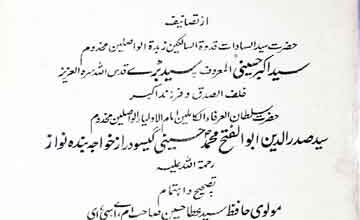 از تصانیف
حضرت سید السادات قدوة السالکین زبدة الواصلین مخدوم
سید اکبر حسینی المعروف بہ سید بڑے قدس اللہ سرہ العزیز
خلف الصدق و فرزند اکبر
حضرت سلطان العرفاء الکاملین امام الاولیاء الواصلین مخدوم
سید صدر الدین ابو الفتح محمد حسینی گیسو دراز خواجہ بندہ نواز
رحمة اللہ علیہ
بتصحیح و اہتمام
مولوی حافظ سید عطا حسین صاحب ام، اے، سی، ای